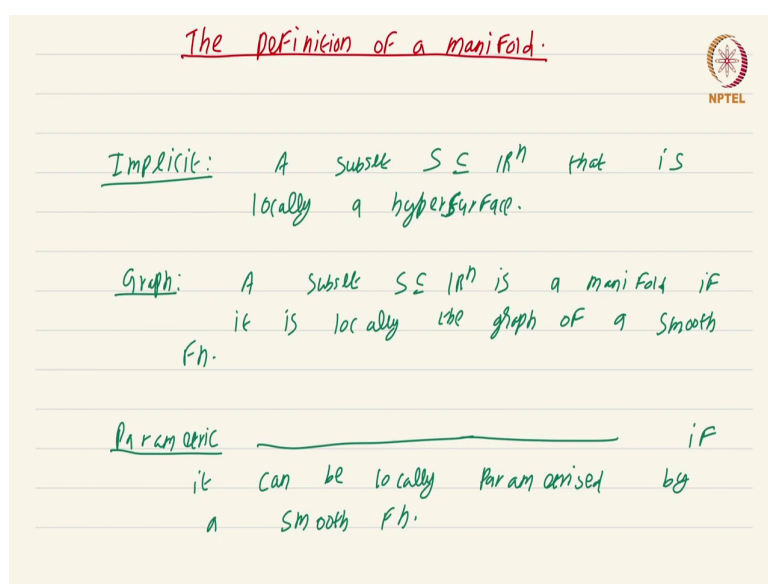 The Definition of a manifold.
NPTEL
Implicit: A subset S ⊆ ℝⁿ that is
locally a hypersurface.
Graph: A subset S ⊆ ℝⁿ is a manifold if
it is locally the graph of a smooth
Fn.
Parametric ——— if
it can be locally parametrised by
a smooth Fn.